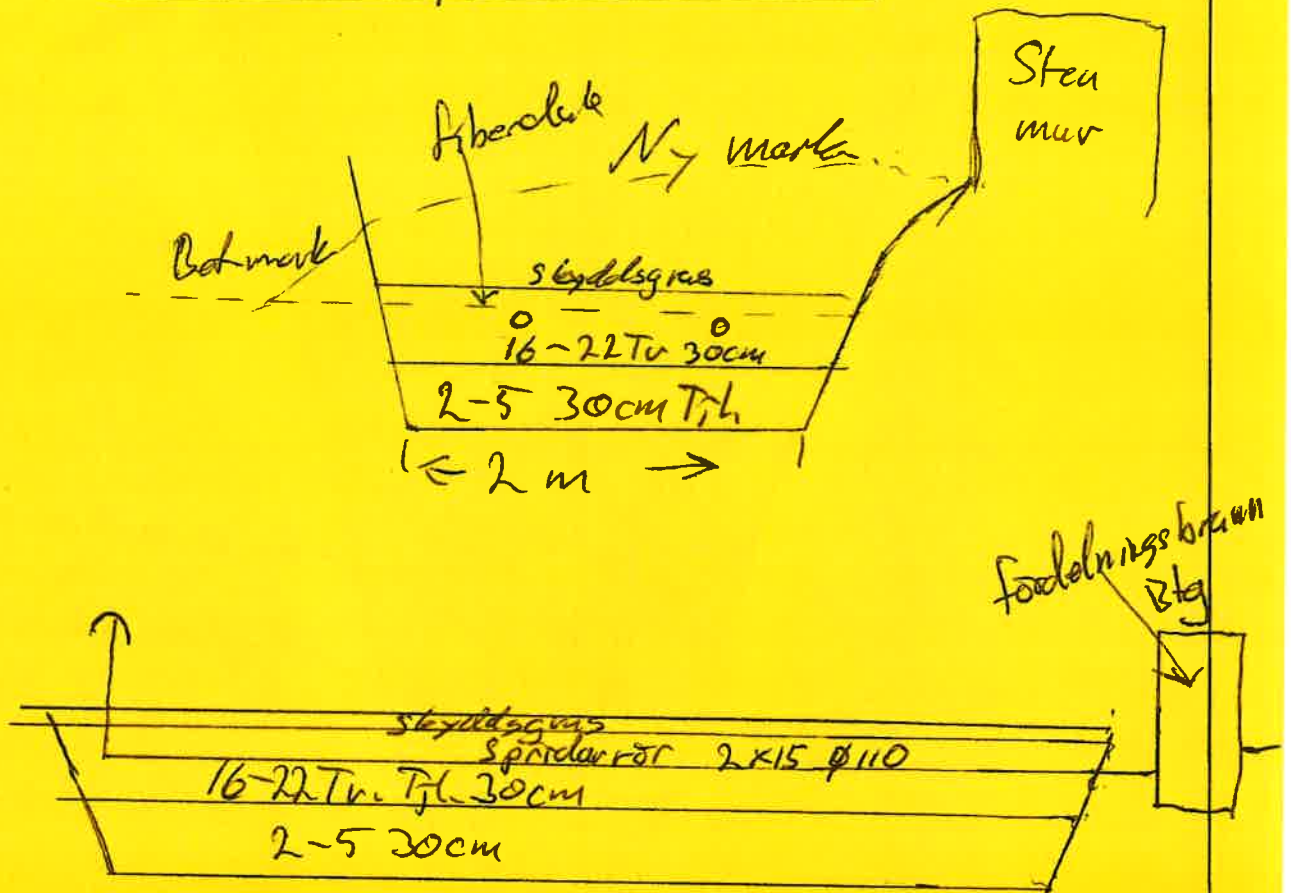 Sten
mur
fiberduk
Ny mark
Bef mark
skyddsgrus
16-22 Tv 30cm
2-5 30cm Tjl.
2 m
Fördelningsbrunn
Btg
skyddsgrus
Spridarrör 2x15 ø110
16-22 Tv. Tjl. 30cm
2-5 30cm